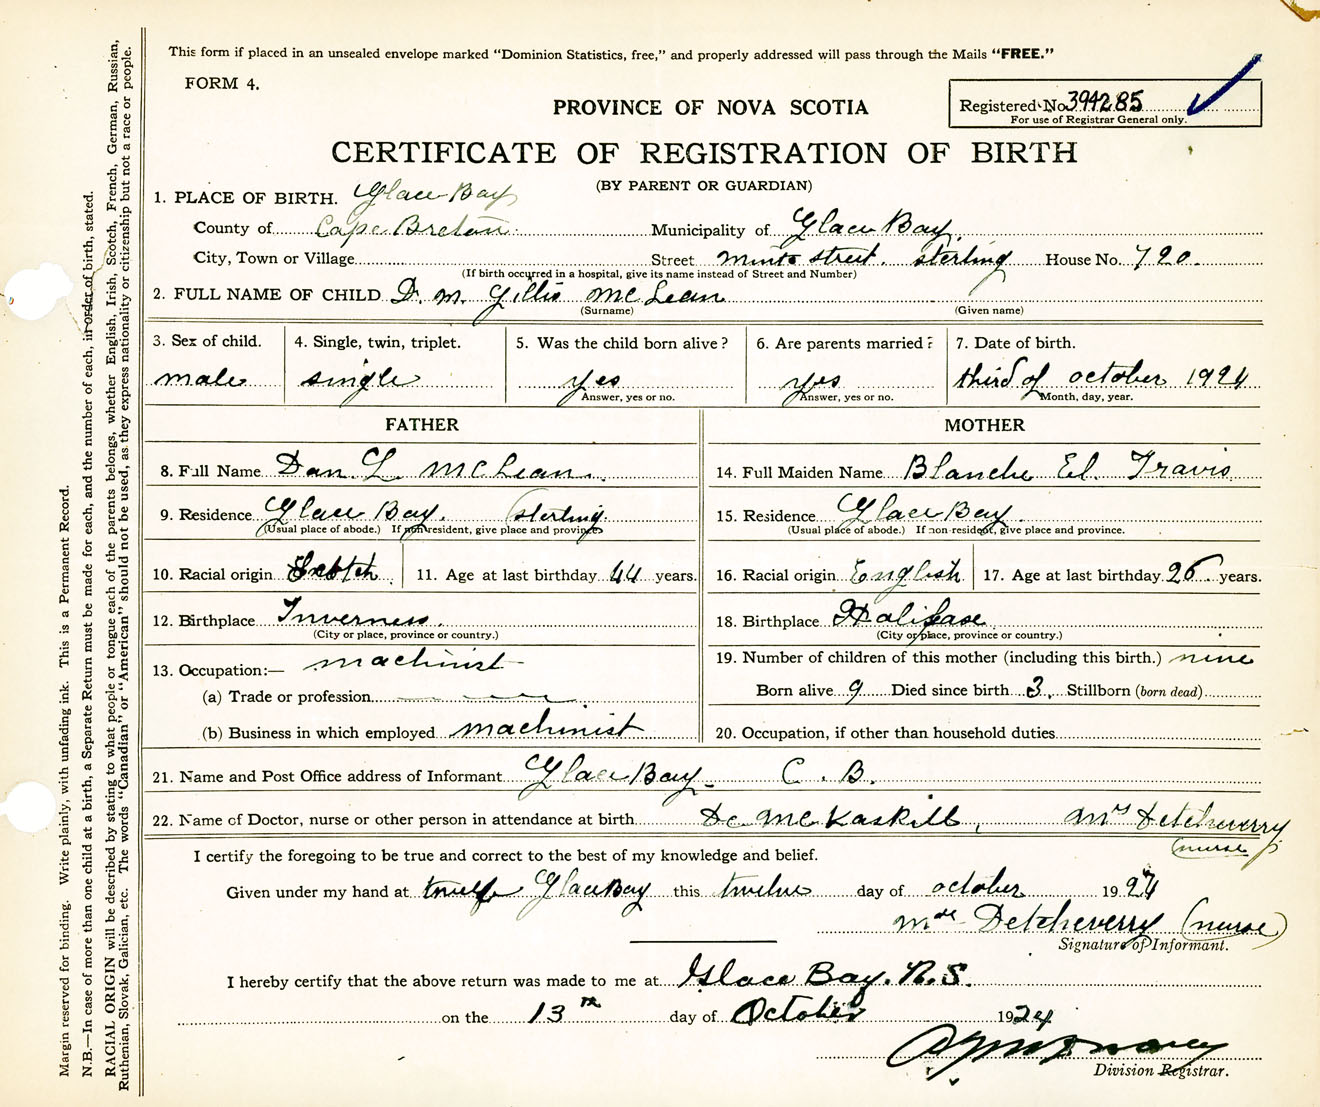 This form if placed in an unsealed envelope marked "Dominion Statistics, free," and properly addressed will pass through the Mails "FREE."
FORM 4.
PROVINCE OF NOVA SCOTIA
Registered No. 394285
For use of Registrar General only.
CERTIFICATE OF REGISTRATION OF BIRTH
(BY PARENT OR GUARDIAN)
1. PLACE OF BIRTH. Glace Bay
County of Cape Breton Municipality of Glace Bay.
City, Town or Village Street Minto street. sterling House No. 720.
(If birth occurred in a hospital, give its name instead of Street and Number)
2. FULL NAME OF CHILD D. M. Gillis McLean
(Surname) (Given name)
3. Sex of child. 4. Single, twin, triplet. 5. Was the child born alive? 6. Are parents married? 7. Date of birth.
male single yes yes third of october 1924
Answer, yes or no. Answer, yes or no. Month, day, year.
FATHER MOTHER
8. Full Name Dan L. McLean. 14. Full Maiden Name Blanche El. Travis
9. Residence Glace Bay. sterling. 15. Residence Glace Bay.
(Usual place of abode.) If non-resident, give place and province. (Usual place of abode.) If non-resident, give place and province.
10. Racial origin Scotch 11. Age at last birthday 44 years. 16. Racial origin English 17. Age at last birthday 26 years.
12. Birthplace Inverness. 18. Birthplace Halifase
(City or place, province or country.) (City or place, province or country.)
13. Occupation:— machinist 19. Number of children of this mother (including this birth.) nine
(a) Trade or profession Born alive 9 Died since birth 3. Stillborn (born dead)
(b) Business in which employed machinist 20. Occupation, if other than household duties
21. Name and Post Office address of Informant Glace Bay C. B.
22. Name of Doctor, nurse or other person in attendance at birth Dc McKaskill, Mrs Detcheverry
(nurse)
I certify the foregoing to be true and correct to the best of my knowledge and belief.
Given under my hand at Glace Bay this twelve day of october 1924
Detcheverry (nurse)
Signature of Informant.
I hereby certify that the above return was made to me at Glace Bay. N.S.
on the 13th day of October 1924
Division Registrar.
Margin reserved for binding. Write plainly, with unfading ink. This is a Permanent Record.
N.B.—In case of more than one child at a birth, a Separate Return must be made for each, and the number of each, in order of birth, stated.
RACIAL ORIGIN will be described by stating to what people or tongue each of the parents belongs, whether English, Irish, Scotch, French, German, Russian,
Ruthenian, Slovak, Galician, etc. The words "Canadian" or "American" should not be used, as they express nationality or citizenship but not a race or people.